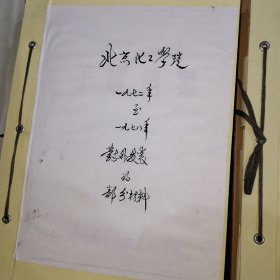 北京化工学院
一九七二年
至
一九七八年
教
的
部分材料